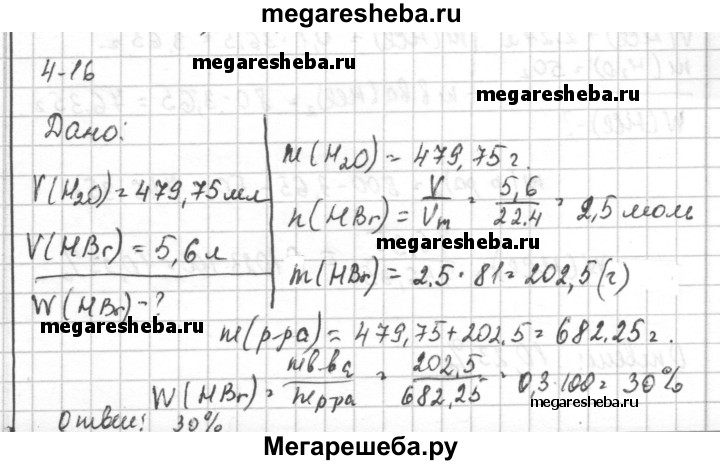 megaresheba.ru
4-16
megaresheba.ru
megaresheba.ru
Дано:
V(H2O)=479,75 мл
V(HBr)=5,6 л
W(HBr)-?
megaresheba.ru
m(H2O)=479,75 г.
n(HBr)=V/Vm=5,6/22.4=2,5 моль
megaresheba.ru
m(HBr)=2.5·81=202,5(г)
m(р-ра)=479,75+202.5=682.25 г.
W(HBr)=mв-ва/mр-ра=202,5/682,25=0,3·100=30%
megaresheba.ru
Ответ: 30%
Мегарешеба.ру